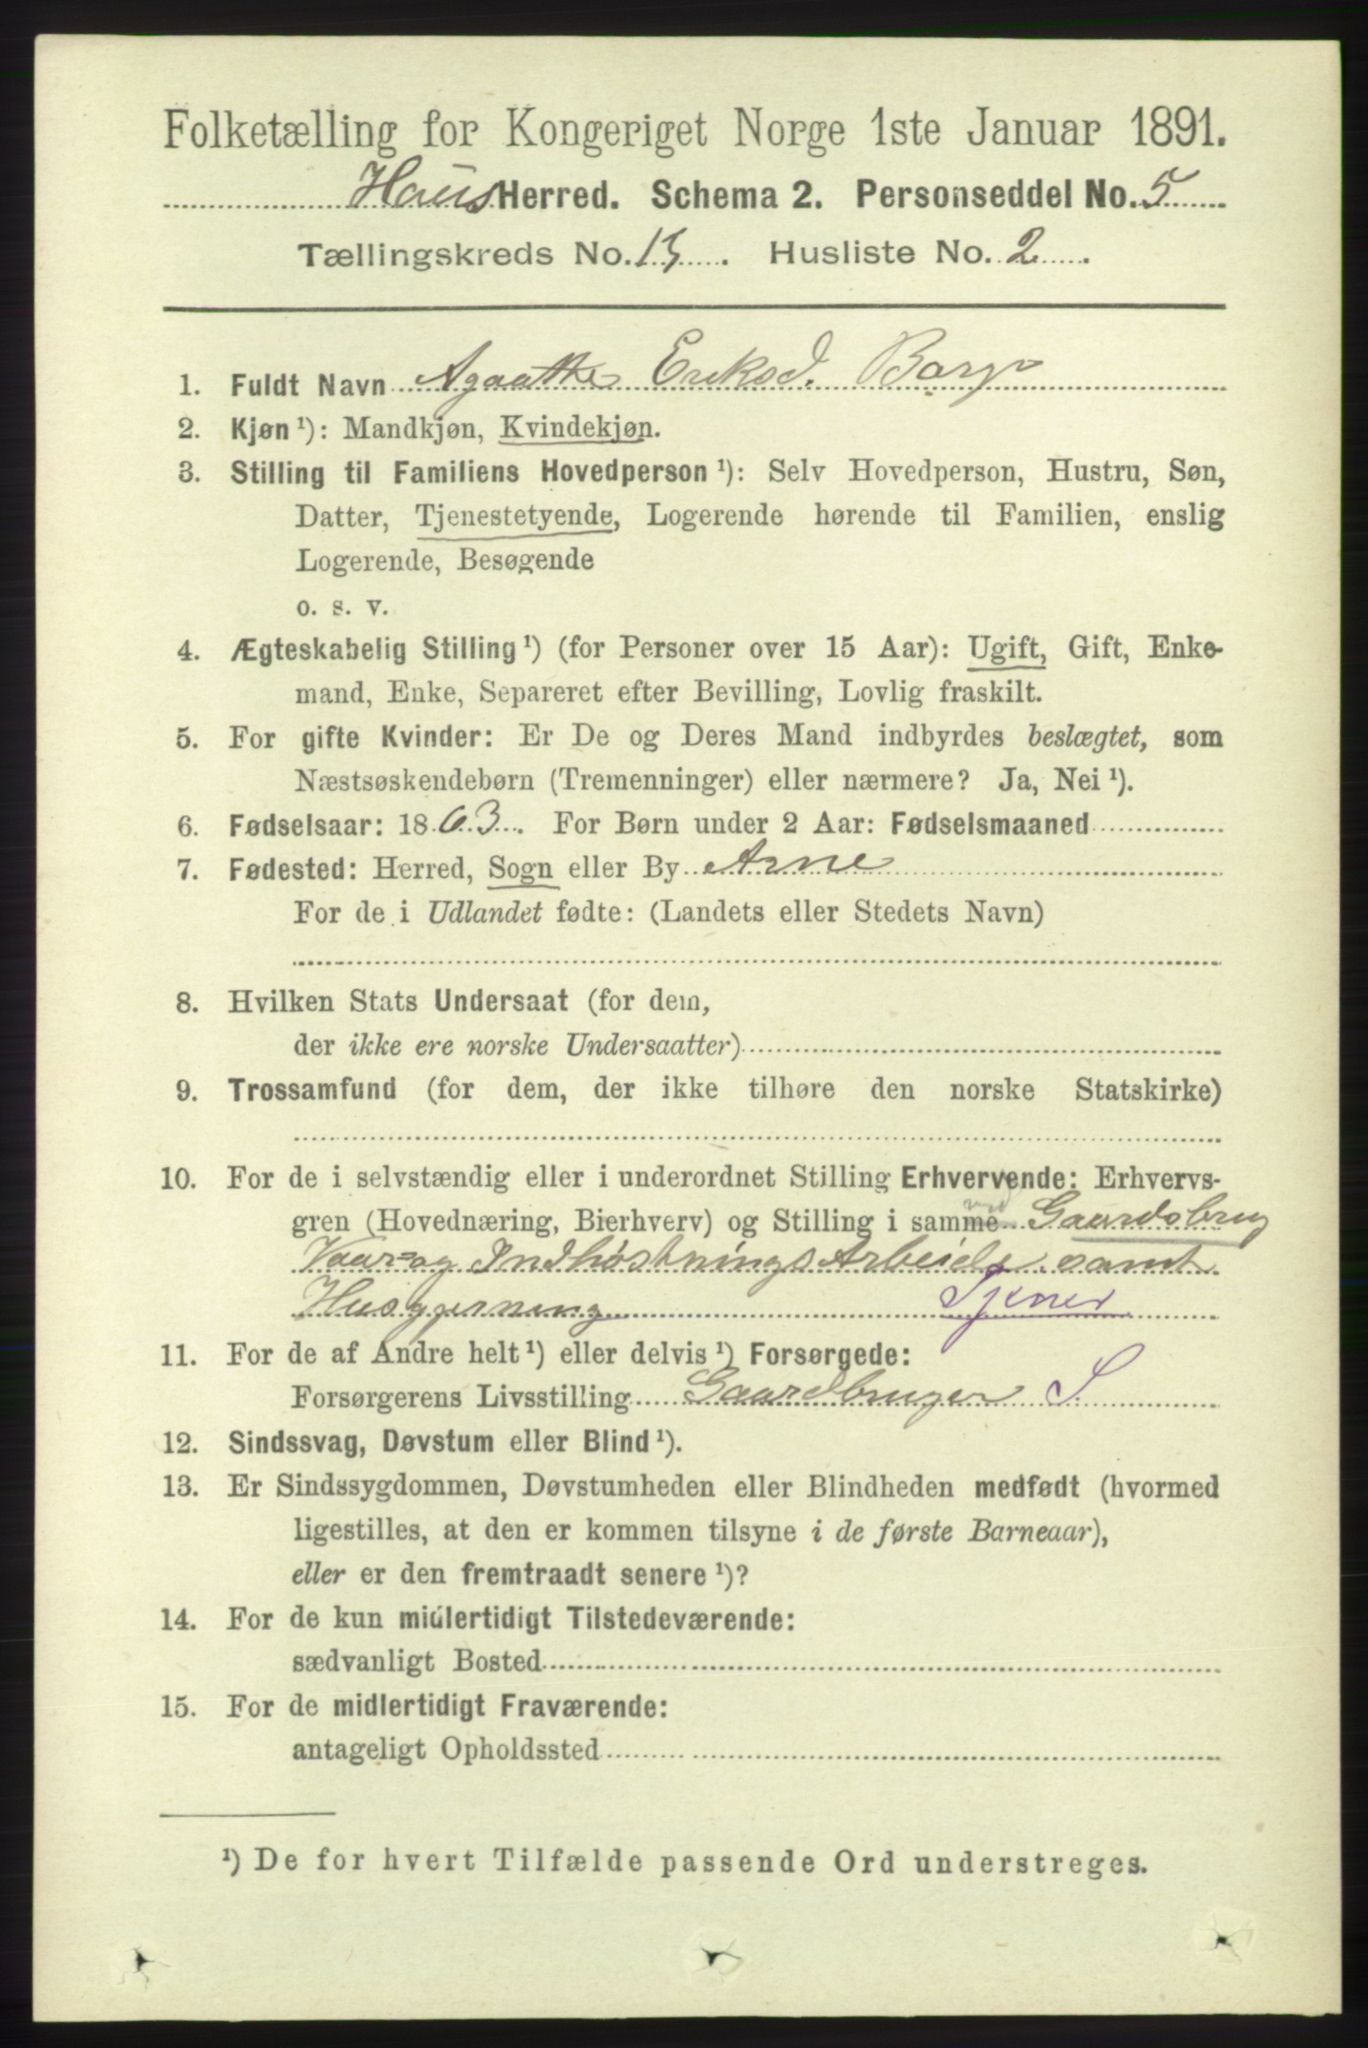 Folketælling for Kongeriget Norge 1ste Januar 1891.
Haus Herred. Schema 2. Personseddel No. 5
Tællingskreds No. 13. Husliste No. 2
1. Fuldt Navn Agaathe Eriksd. Borge
2. Kjøn¹): Mandkjøn, Kvindekjøn.
3. Stilling til Familiens Hovedperson¹): Selv Hovedperson, Hustru, Søn,
Datter, Tjenestetyende, Logerende hørende til Familien, enslig
Logerende, Besøgende
o. s. v.
4. Ægteskabelig Stilling¹) (for Personer over 15 Aar): Ugift, Gift, Enke-
mand, Enke, Separeret efter Bevilling, Lovlig fraskilt.
5. For gifte Kvinder: Er De og Deres Mand indbyrdes beslægtet, som
Næstsøskendebørn (Tremenninger) eller nærmere? Ja, Nei¹).
6. Fødselsaar: 1863. For Børn under 2 Aar: Fødselsmaaned
7. Fødested: Herred, Sogn eller By Arne
For de i Udlandet fødte: (Landets eller Stedets Navn)
8. Hvilken Stats Undersaat (for dem,
der ikke ere norske Undersaatter)
9. Trossamfund (for dem, der ikke tilhøre den norske Statskirke)
10. For de i selvstændig eller i underordnet Stilling Erhvervende: Erhvervs-
gren (Hovednæring, Bierhverv) og Stilling i samme Gaardsbrug
Vaar- og Indhøstnings Arbeide samt
Husgjerning Tjener
11. For de af Andre helt¹) eller delvis¹) Forsørgede:
Forsørgerens Livsstilling Gaardbruger S
12. Sindssvag, Døvstum eller Blind¹).
13. Er Sindssygdommen, Døvstumheden eller Blindheden medfødt (hvormed
ligestilles, at den er kommen tilsyne i de første Barneaar),
eller er den fremtraadt senere¹)?
14. For de kun midlertidigt Tilstedeværende:
sædvanligt Bosted
15. For de midlertidigt Fraværende:
antageligt Opholdssted
¹) De for hvert Tilfælde passende Ord understreges.